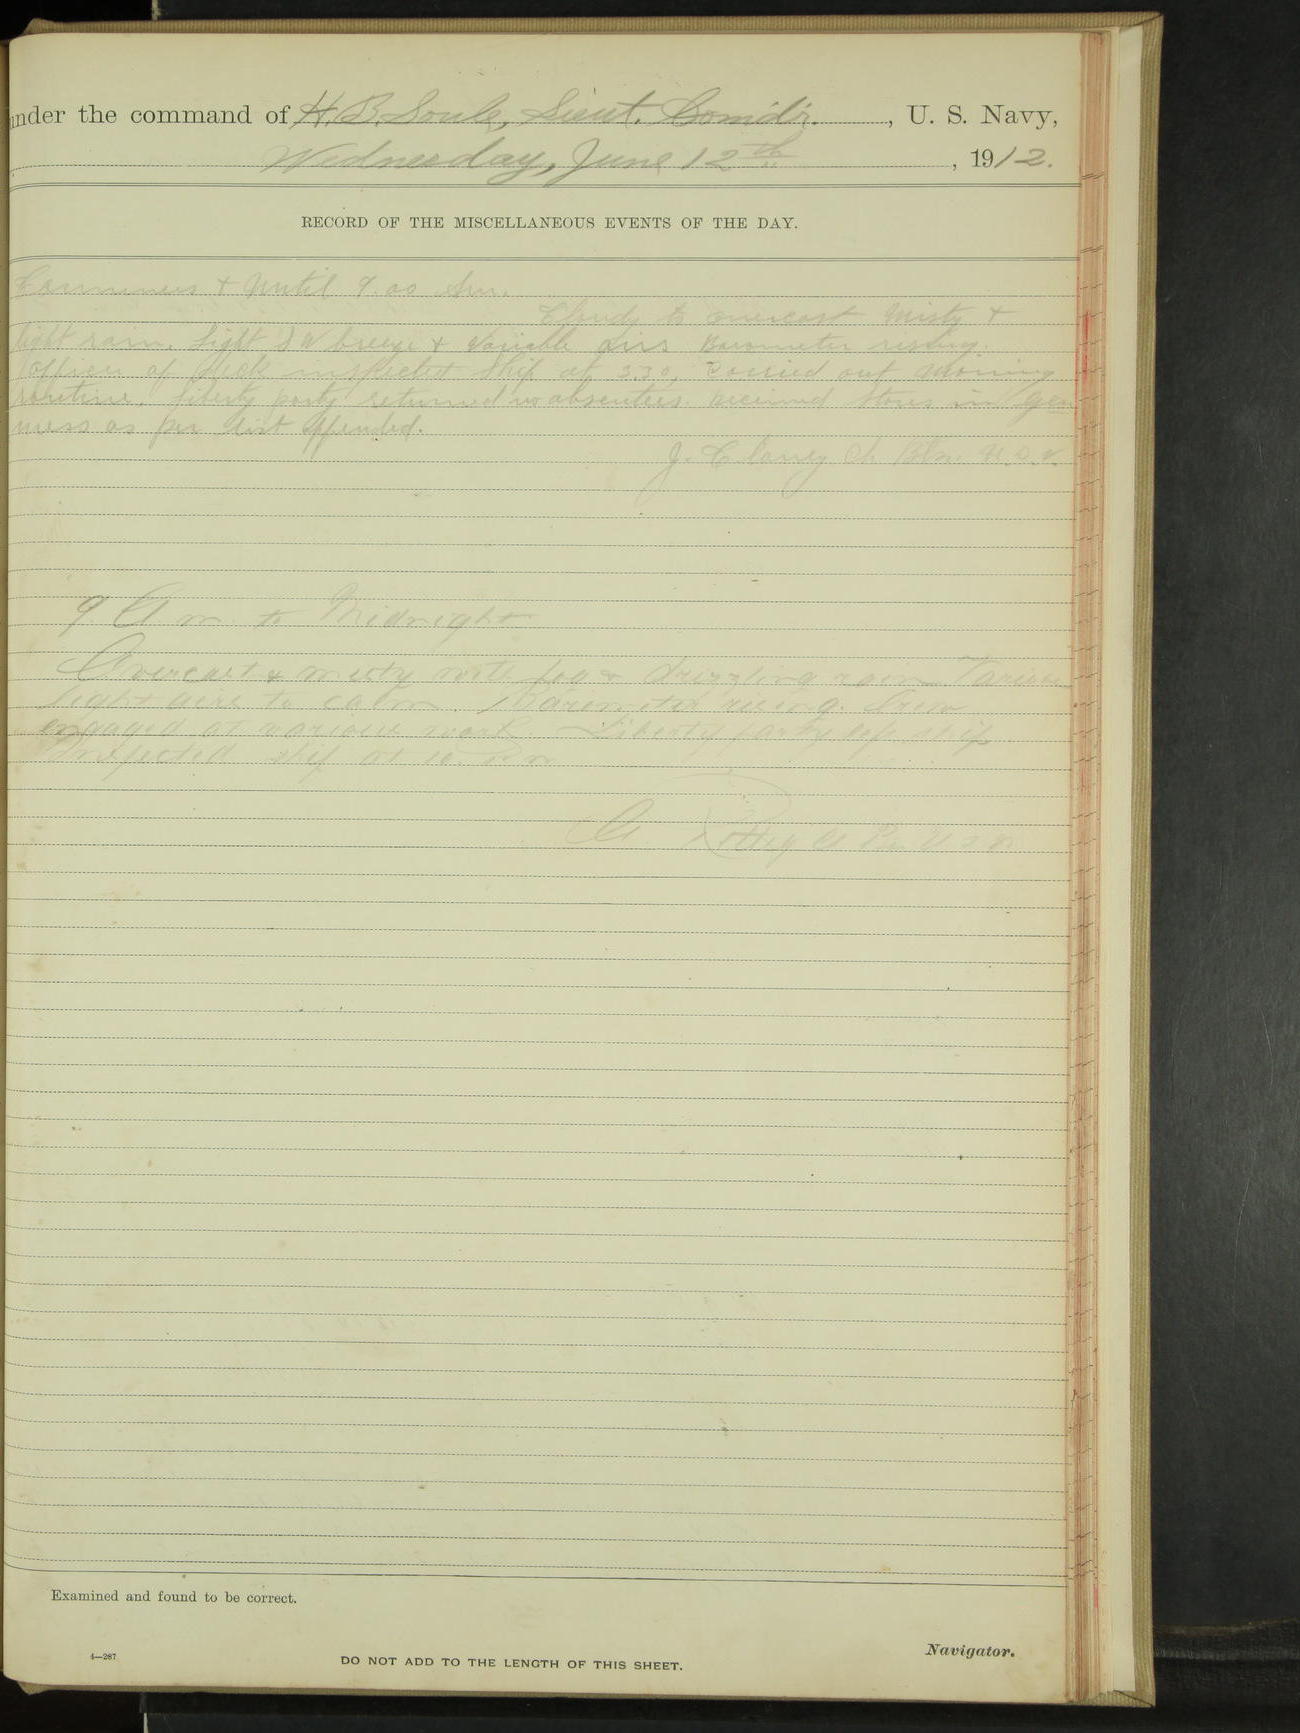 under the command of H. B. Soule, Lieut. Comd'r. , U. S. Navy,
Wednesday, June 12th , 1912.
RECORD OF THE MISCELLANEOUS EVENTS OF THE DAY.
Commences & Until 9.00 Am.
Cloudy to overcast Misty &
light rain. Light SW breeze & Variable airs Barometer rising.
Officer of Deck inspected Ship at 330, Carried out Morning
routine. Liberty party returned no absentees. Received Stores in Gen
mess as per list appended.
J. Clancy Ch Btsn. U.S.N.
9 A m. to Midnight
Overcast & misty with fog & drizzling rain. Various
light airs to calm. Barometer rising. Crew
engaged at various work. Liberty party left ship.
Inspected ship at 10. P m
U S N
Examined and found to be correct.
Navigator.
4—287
DO NOT ADD TO THE LENGTH OF THIS SHEET.